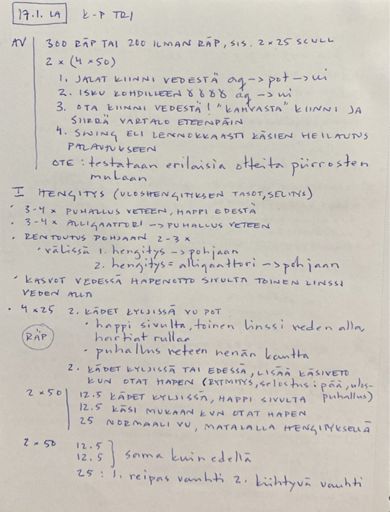 17.1. LA K-P TRI
AV 300 RÄP TAI 200 ILMAN RÄP, SIS. 2x25 SCULL
2 x (4 x 50)
1. JALAT KIINNI VEDESTÄ äg -> pot -> ui
2. ISKU KOHDILLEEN äg -> ui
3. OTA KIINNI VEDESTÄ! "KAHVASTA" KIINNI JA
SIIRRÄ VARTALO ETEENPÄIN
4. SWING ELI LENNOKKAASTI KÄSIEN HEILAUTUS
PALAUTUKSEEN
OTE: testataan erilaisia otteita piirrosten
mukaan
I HENGITYS (ULOSHENGITYKSEN TASOT, SELITYS)
• 3-4 x PUHALLUS VETEEN, HAPPI EDESTÄ
• 3-4 x ALLIGAATTORI -> PUHALLUS VETEEN
• RENTOUTUS POHJAAN 2-3 x
• välissä 1. hengitys -> pohjaan
2. hengitys = alligaattori -> pohjaan
• KASVOT VEDESSÄ HAPENOTTO SIVULTA TOINEN LINSSI
VEDEN ALLA
• 4 x 25 2. KÄDET KYLJISSÄ VU POT
• happi sivulta, toinen linssi veden alla,
RÄP hartiat rullaa
• puhallus veteen nenän kautta
2. KÄDET KYLJISSÄ TAI EDESSÄ, LISÄÄ KÄSIVETO
KUN OTAT HAPEN (RYTMITYS, selostus: pää, ulos-
puhallus)
2 x 50 12.5 KÄDET KYLJISSÄN, HAPPI SIVULTA
12.5 KÄSI MUKAAN KUN OTAT HAPEN
25 NORMAALI VU, MATALALLA HENGITYKSELLÄ
2 x 50 12.5
12.5 } sama kuin edellä
25 : 1. reipas vauhti 2. kiihtyvä vauhti